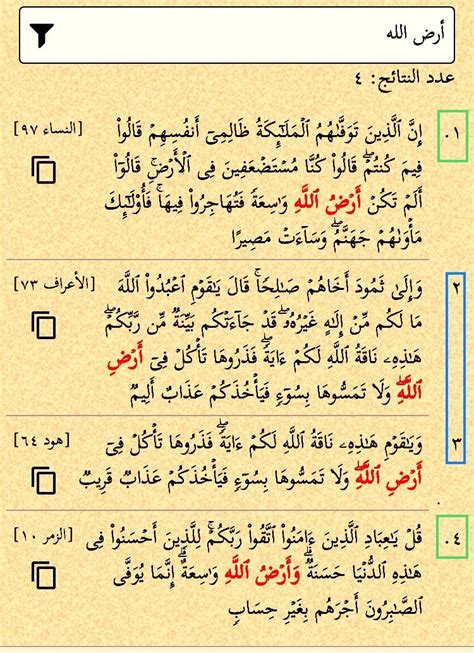 أرض الله
عدد النتائج: ٤
١. إِنَّ ٱلَّذِينَ تَوَفَّىٰهُمُ ٱلْمَلَـٰٓئِكَةُ ظَالِمِىٓ أَنفُسِهِمْ قَالُوا۟ [النساء ٩٧]
فِيمَ كُنتُمْ ۖ قَالُوا۟ كُنَّا مُسْتَضْعَفِينَ فِى ٱلْأَرْضِ ۚ قَالُوٓا۟
أَلَمْ تَكُنْ أَرْضُ ٱللَّهِ وَٰسِعَةً فَتُهَاجِرُوا۟ فِيهَا ۚ فَأُو۟لَـٰٓئِكَ
مَأْوَىٰهُمْ جَهَنَّمُ ۖ وَسَآءَتْ مَصِيرًا
٢ وَإِلَىٰ ثَمُودَ أَخَاهُمْ صَـٰلِحًا ۗ قَالَ يَـٰقَوْمِ ٱعْبُدُوا۟ ٱللَّهَ [الأعراف ٧٣]
مَا لَكُم مِّنْ إِلَـٰهٍ غَيْرُهُۥ ۖ قَدْ جَآءَتْكُم بَيِّنَةٌ مِّن رَّبِّكُمْ ۖ
هَـٰذِهِۦ نَاقَةُ ٱللَّهِ لَكُمْ ءَايَةً ۖ فَذَرُوهَا تَأْكُلْ فِىٓ أَرْضِ
ٱللَّهِ ۖ وَلَا تَمَسُّوهَا بِسُوٓءٍ فَيَأْخُذَكُمْ عَذَابٌ أَلِيمٌ
٣ وَيَـٰقَوْمِ هَـٰذِهِۦ نَاقَةُ ٱللَّهِ لَكُمْ ءَايَةً ۖ فَذَرُوهَا تَأْكُلْ فِىٓ [هود ٦٤]
أَرْضِ ٱللَّهِ ۖ وَلَا تَمَسُّوهَا بِسُوٓءٍ فَيَأْخُذَكُمْ عَذَابٌ قَرِيبٌ
٤. قُلْ يَـٰعِبَادِ ٱلَّذِينَ ءَامَنُوا۟ ٱتَّقُوا۟ رَبَّكُمْ ۚ لِلَّذِينَ أَحْسَنُوا۟ فِى [الزمر ١٠]
هَـٰذِهِ ٱلدُّنْيَا حَسَنَةٌ ۗ وَأَرْضُ ٱللَّهِ وَٰسِعَةٌ ۗ إِنَّمَا يُوَفَّى
ٱلصَّـٰبِرُونَ أَجْرَهُم بِغَيْرِ حِسَابٍ